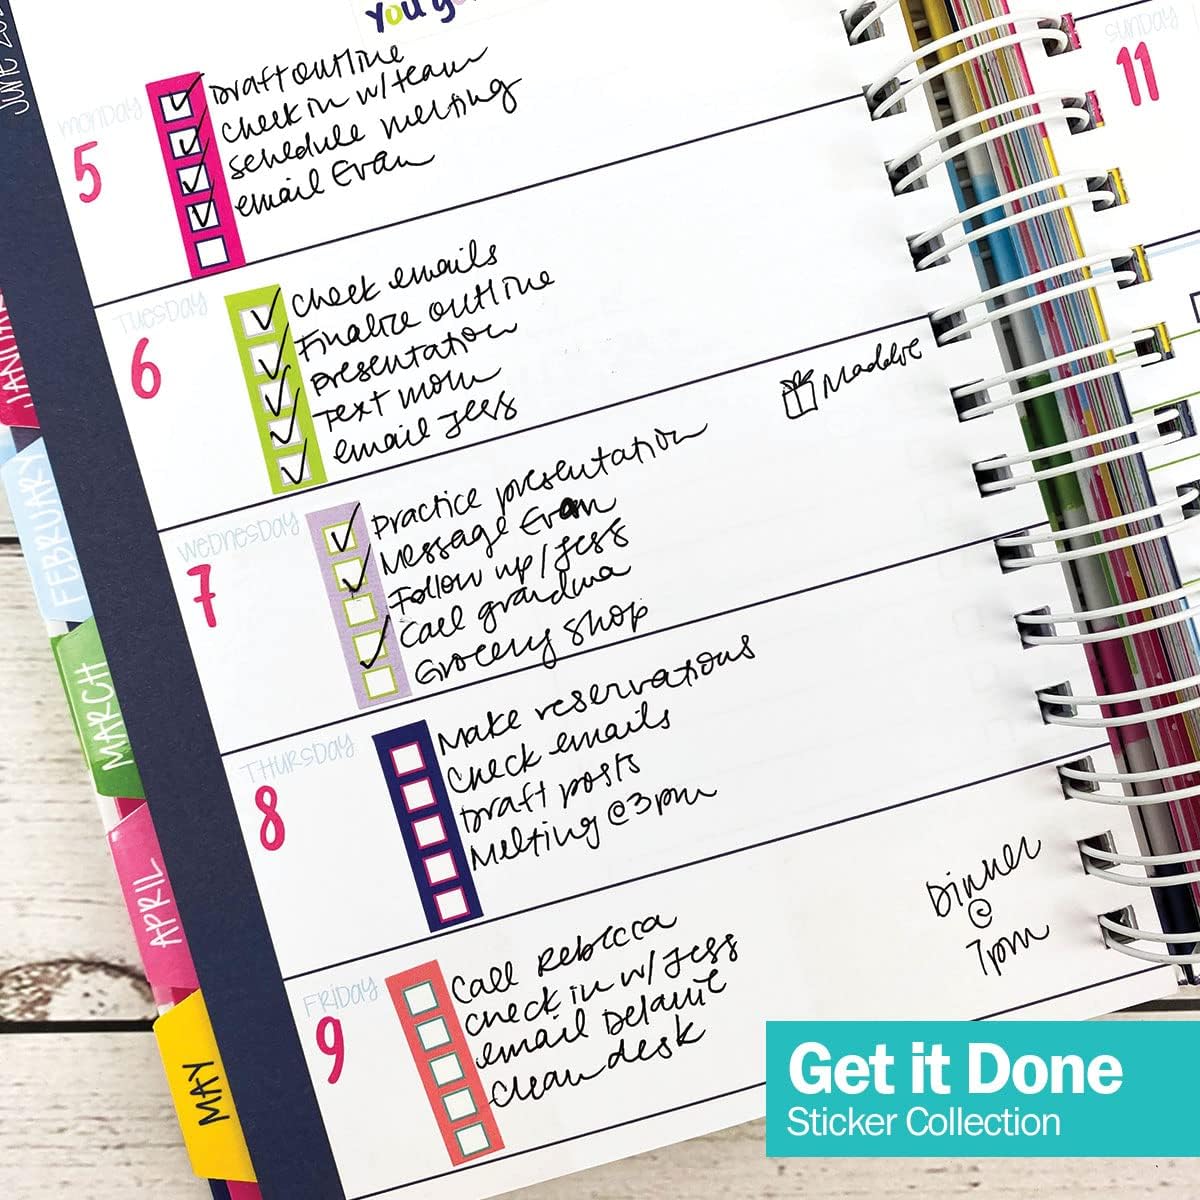 You
June 20
Monday
5
Draft outline
Check in w/team
schedule meeting
email Evan
Tuesday
6
Check emails
Finalize outline
presentation
Text mom
email Jess
Wednesday
7
Practice presentation
Message Evan
Follow up/Jess
Call grandma
Grocery shop
Maddie
Thursday
8
Make reservations
Check emails
Draft posts
Meeting @ 3pm
Friday
9
Call Rebecca
check in w/ Jess
email Delanie
Clean desk
Dinner
@
7pm
Sunday
11
JANUARY
FEBRUARY
MARCH
APRIL
MAY
Get it Done
Sticker Collection